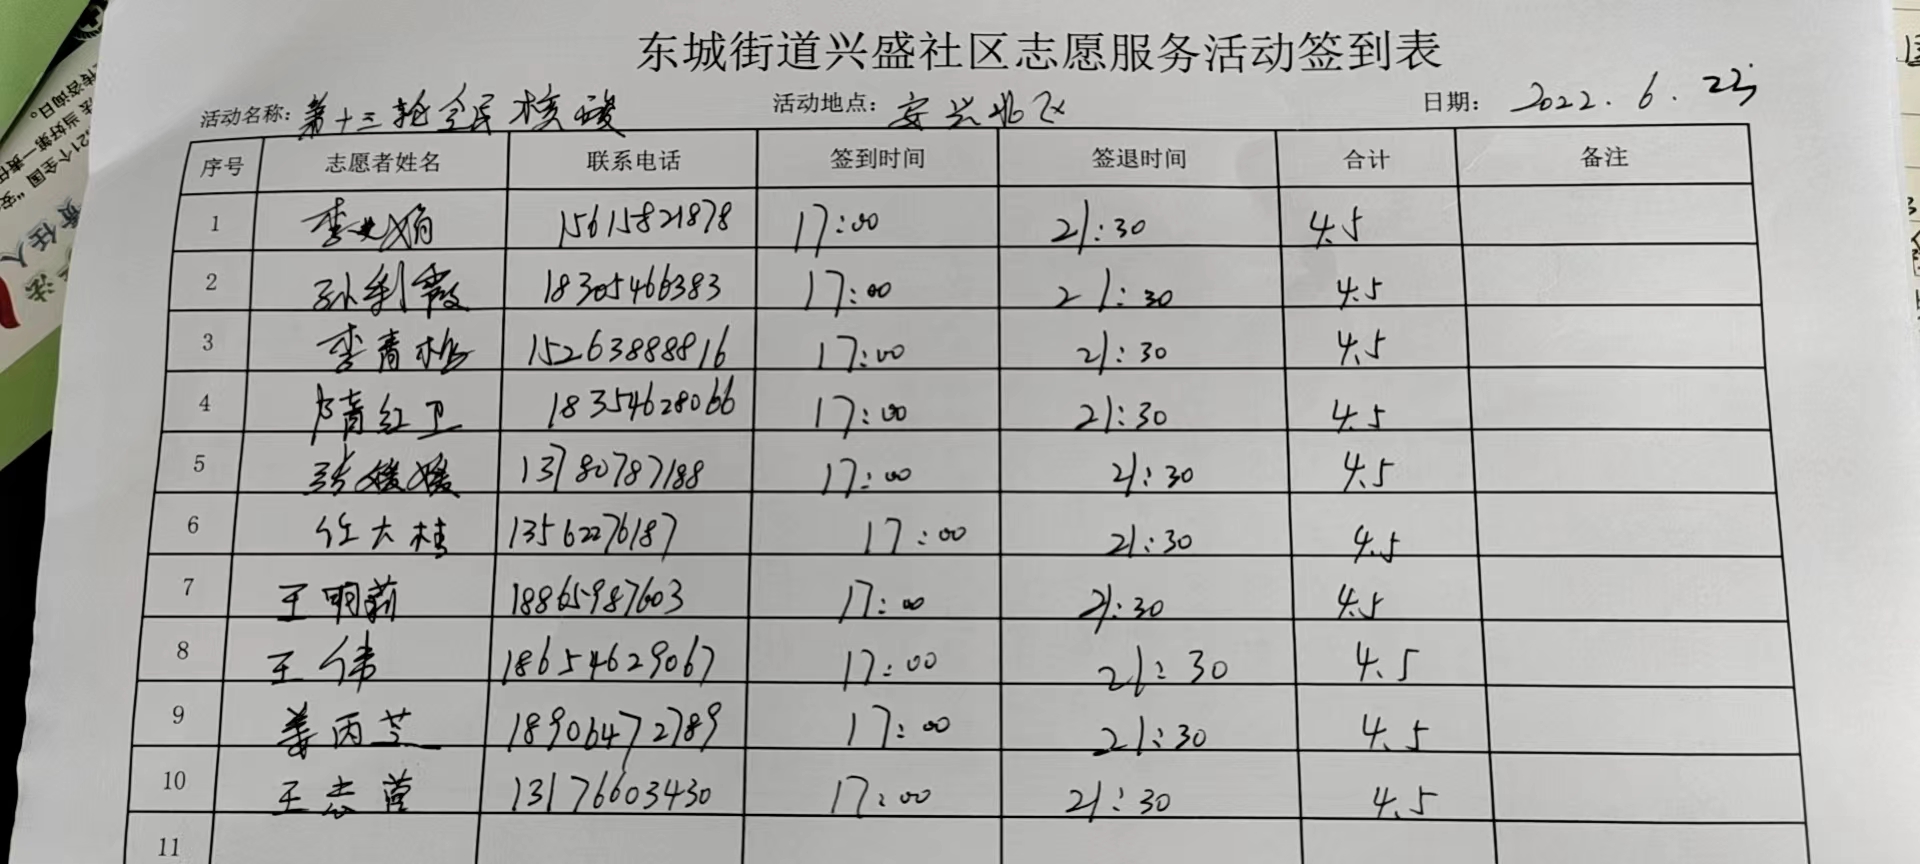 东城街道兴盛社区志愿服务活动签到表
活动名称：第十三轮全民核酸 活动地点：安兴北区 日期：2022.6.23
序号 志愿者姓名 联系电话 签到时间 签退时间 合计 备注
1 李 娟 15615821878 17:00 21:30 4.5
2 孙利霞 18305466383 17:00 21:30 4.5
3 李青 15263888816 17:00 21:30 4.5
4 隋红卫 18354628066 17:00 21:30 4.5
5 张媛媛 13780787188 17:00 21:30 4.5
6 任大桂 13562276187 17:00 21:30 4.5
7 王明莉 18865987603 17:00 21:30 4.5
8 王伟 18654629067 17:00 21:30 4.5
9 姜丙芝 18906472789 17:00 21:30 4.5
10 王志营 13176603430 17:00 21:30 4.5
11
责任人